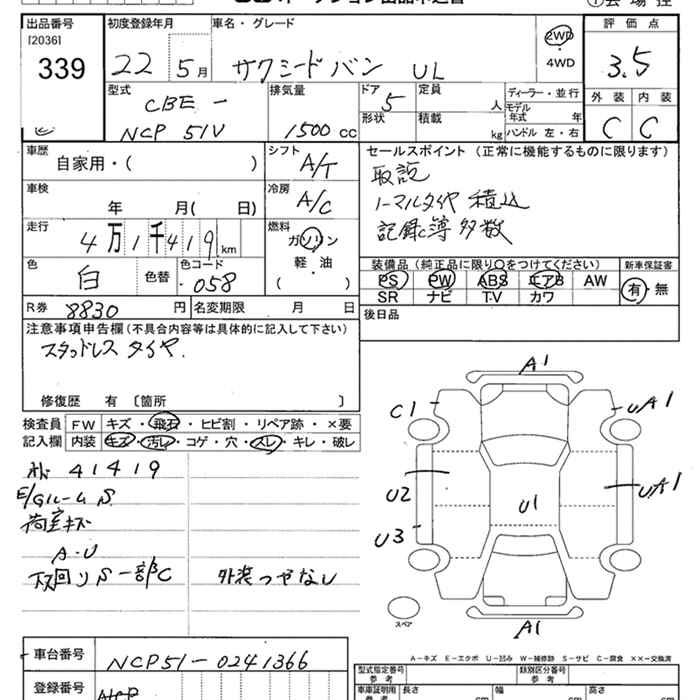 出品番号
[2036]
339
初度登録年月
22 5月
車名・グレード
サクシードバン UL
2WD
・
4WD
評価点
3.5
外装 内装
C C
型式
CBE-
NCP 51V
排気量
1500 CC
ドア 5
形状
定員 人
積載 kg
ディーラー・並行
モデル年式 年
ハンドル 左・右
車歴
自家用・( )
シフト
A/T
車検
年 月( 日)
冷房
A/C
走行
4万1千419 km
燃料
ガソリン
軽・油
( )
色
白
色替
色コード
058
R券 8830 円
名変期限 月 日
セールスポイント (正常に機能するものに限ります)
取説
ノーマルタイヤ 積込
記録簿 多数
装備品 (純正品に限り○をつけてください)
PS PW ABS エアB AW
SR ナビ TV カワ
新車保証書
有・無
後日品
注意事項申告欄(不具合内容等は具体的に記入して下さい)
スタッドレス タイヤ.
修復歴 有 〔箇所 〕
検査員
記入欄
FW キズ・飛石・ヒビ割・リペア跡・×要
内装 キズ・汚レ・コゲ・穴・スレ・キレ・破レ
41419
E/Gルーム S
荷室キズ
A・U
下回り S 一部C
外装つやなし
A1
C1
UA1
U2
U1
UA1
U3
A1
スペア
A-キズ E-エクボ U-凹み W-補修跡 S-サビ C-腐食 ××-交換済
車台番号
NCP51-0241366
登録番号
型式指定番号
参考
類別区分番号
参考
車庫証明用
参考
長さ cm
幅 cm
高さ cm